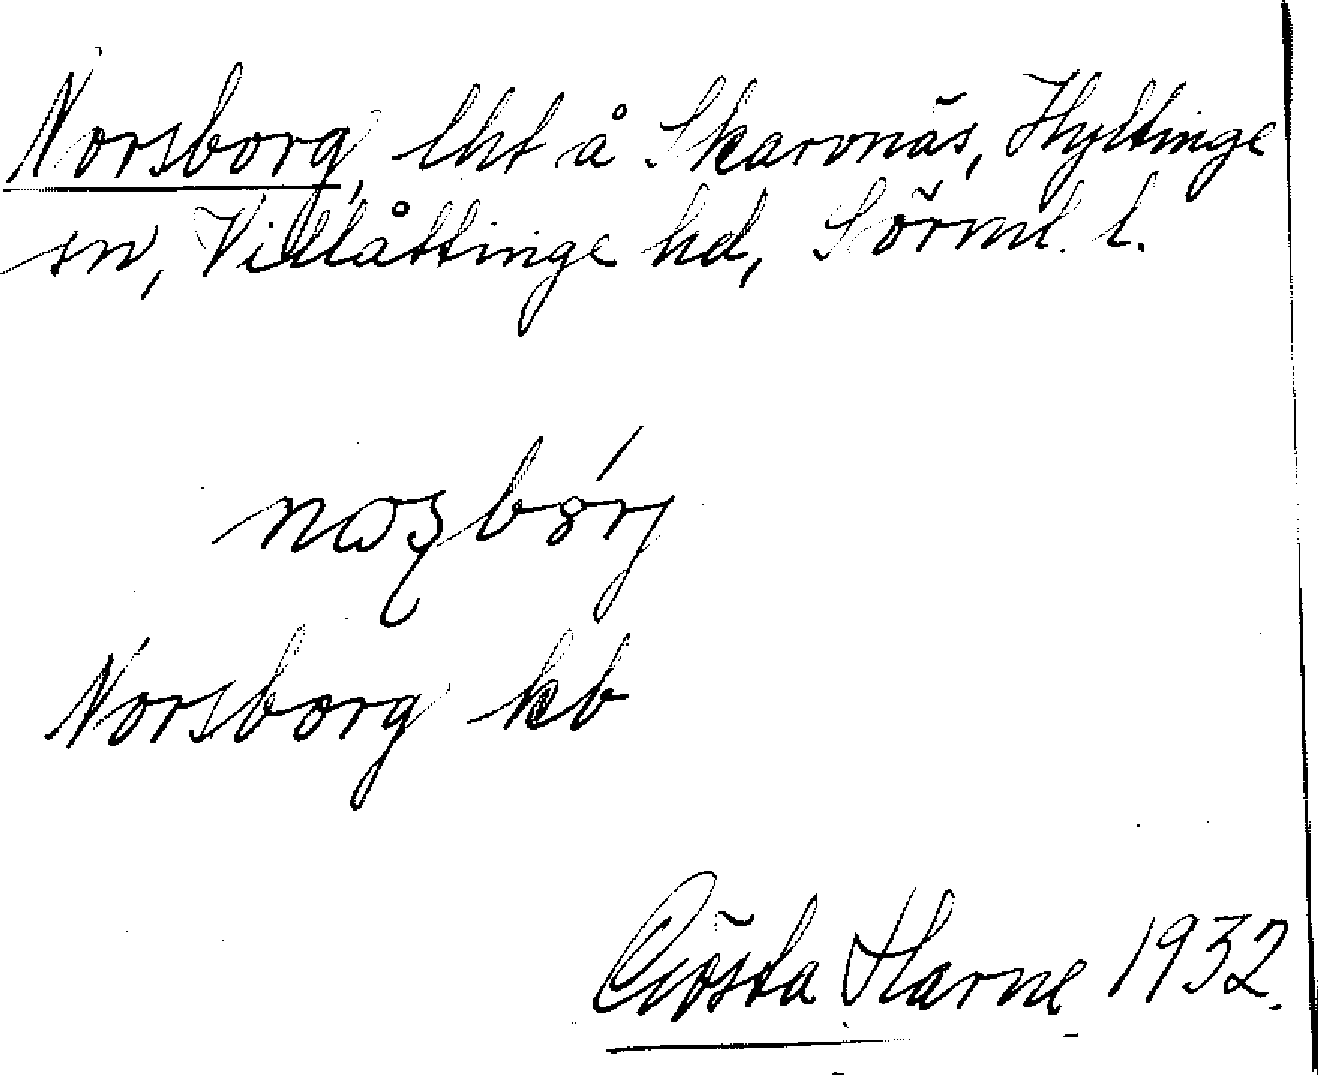 Norsborg, lht å Skarvnäs, Hyltinge
sn, Villåttinge hd, Sörml. l.
Norsborg kb
Gösta Harne 1932.